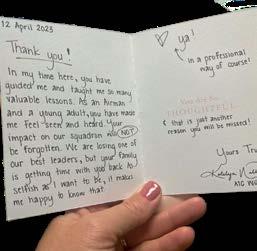 12 April 2023
Thank you!
In my time here, you have
guided me and taught me so many
valuable lessons. As an Airman
and a young adult, you have made
me feel seen and heard. Your
impact on our squadron will NOT
be forgotten. We are losing one of
our best leaders, but your family
is getting time with you back. As
selfish as I want to be, it makes
me happy to know that.
♡ ya!
in a professional
way of course!
You Are So
THOUGHTFUL
& that is just another
reason you will be missed!
Yours Tru
Katelyn
A1C